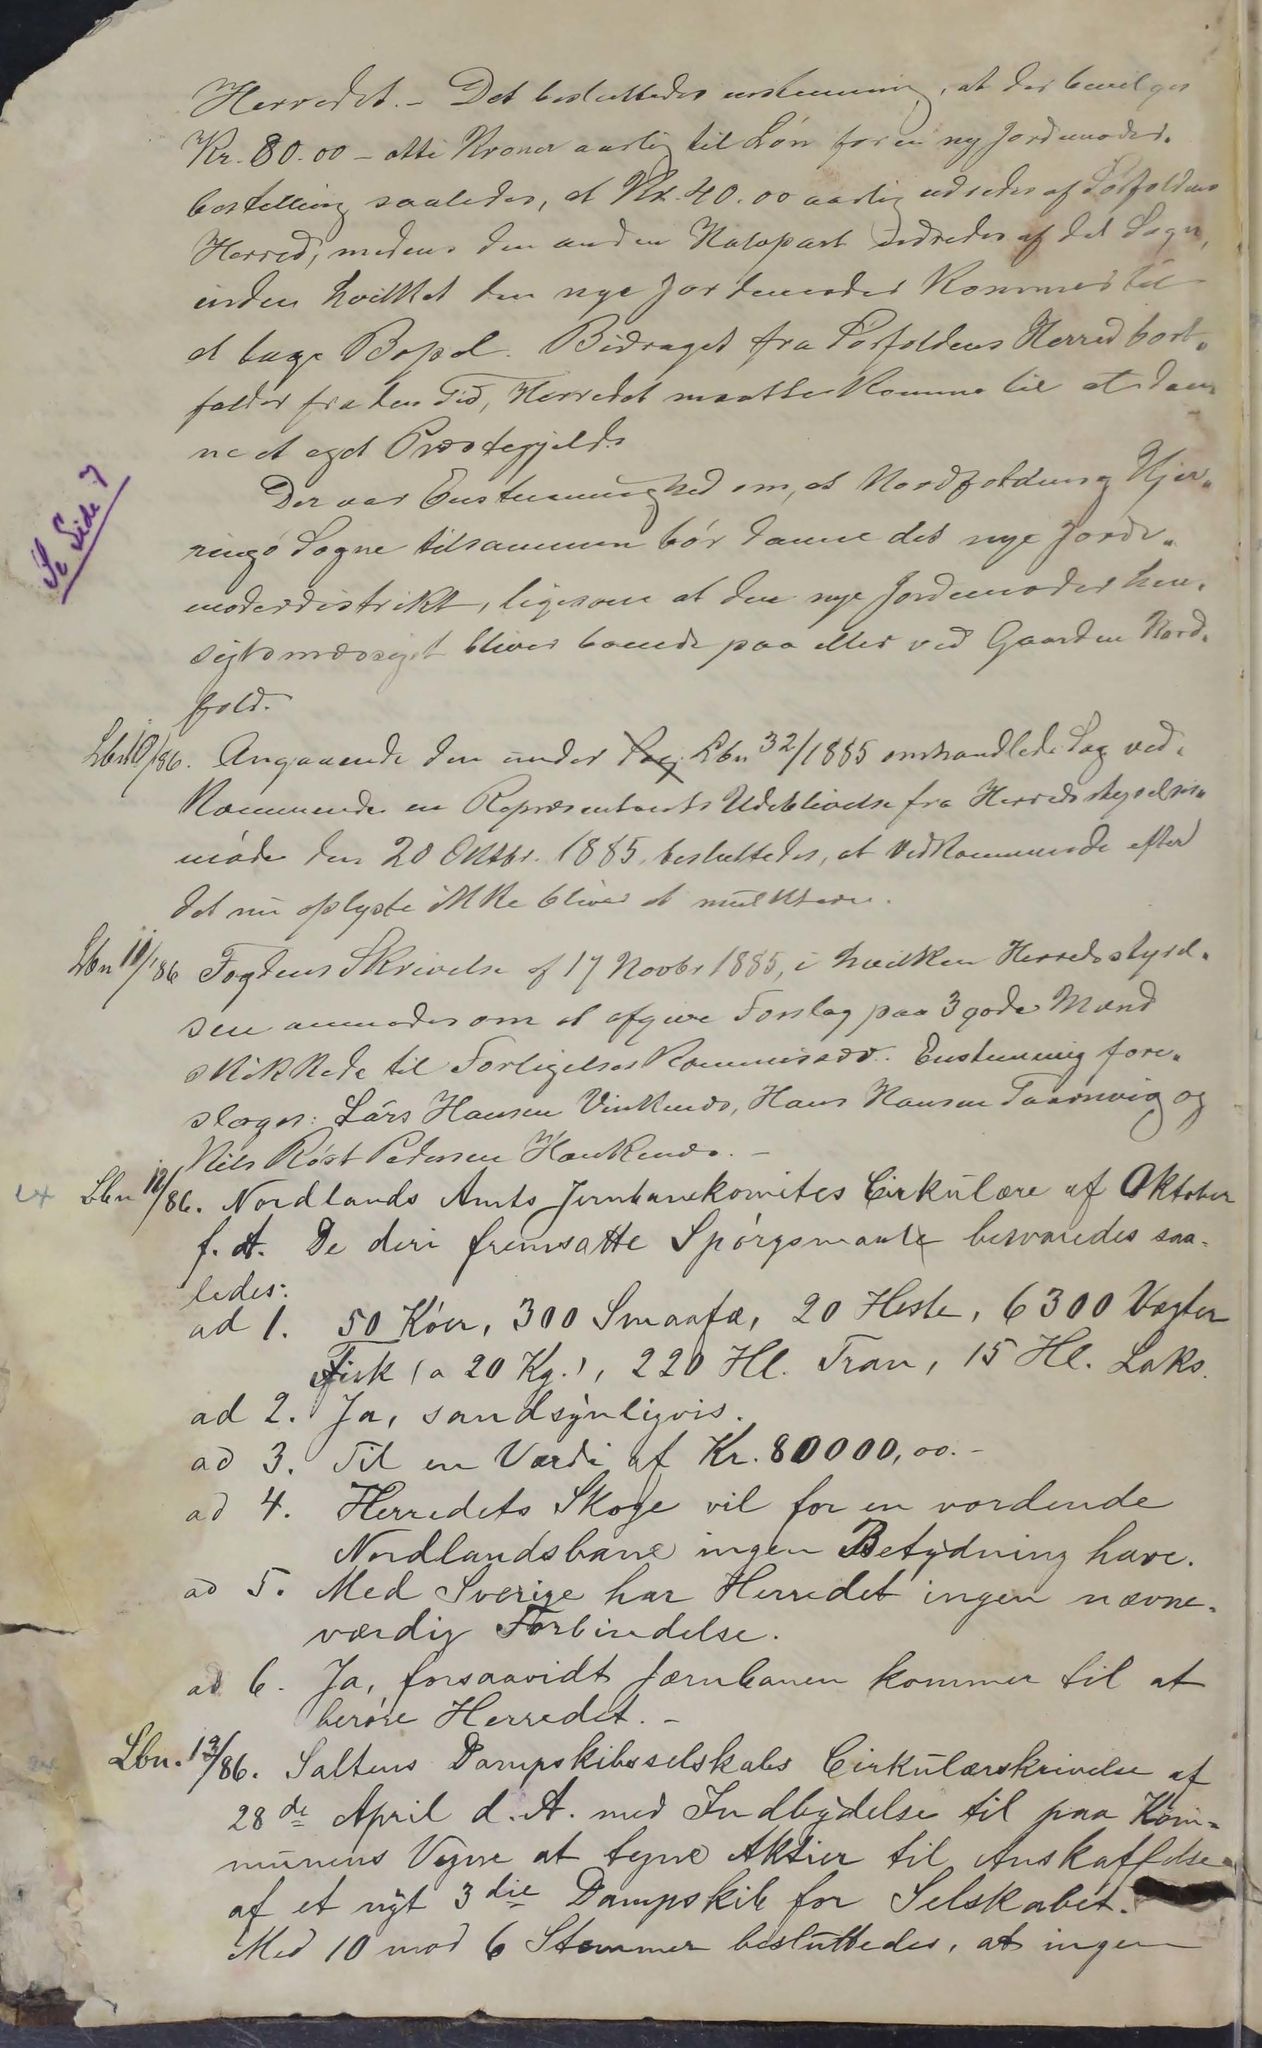 Herredet. - Det besluttedes enstemmig, at der bevilges
Kr. 80.00 - otti Kroner aarlig til Løn for en ny Jordemoder-
bestilling saaledes, at Kr. 40.00 aarlig udredes af Sørfoldens
Herred, medens den anden Halvpart udredes af det Sogn,
inden hvilket den nye Jordemoder kommer til
at tage Bopæl. Bidraget fra Sørfoldens Herred bort-
falder fra den Tid, Herredet maatte komme til at dan
ne et eget Præstegjeld.
Der var Enstemmighed om, at Nordfolden og Kjer-
ringø Sogne tilsammen bør danne det nye Jorde-
moderdistrikt, ligesom at den nye Jordemoder hen-
sigtsmæssigst bliver boende paa eller ved Gaarden Nord-
fold.
Se Side 7
Lbn 10/86. Angaaende den under Sag Lbn 32/1885 omhandlede Sag ved-
kommende en Repræsentants Udeblivelse fra Herredsstyrelses-
møde den 20 Oktbr. 1885, besluttedes, at Vedkommende efter
det nu oplyste ikke bliver at mulktere.
Lbn 11/86 Fogdens Skrivelse af 17 Novbr 1885, i hvilken Herredsstyrel-
sen anmodes om at afgive Forslag paa 3 gode Mænd
skikkede til Forligelseskommissær. Enstemmig fore-
sloges: Lars Hansen Vinkenes, Hans Hansen Taarnvig og
Nils Røst Pedersen Haukenes. -
Lbn 12/86. Nordlands Amts Jernbanekomites Cirkulære af Oktober
f. A. De deri fremsatte Spørgsmaale besvaredes saa-
ledes:
ad 1. 50 Køer, 300 Smaafæ, 20 Heste, 6300 Vægter
Fisk (a 20 Kg.), 220 Hl. Tran, 15 Hl. Laks.
ad 2. Ja, sandsynligvis.
ad 3. Til en Værdi af Kr. 80000,00. -
ad 4. Herredets Skoge vil for en vordende
Nordlandsbane ingen Betydning have.
ad 5. Med Sverige har Herredet ingen nævne-
værdig Forbindelse.
ad 6. Ja, forsaavidt Jærnbanen kommer til at
berøre Herredet. -
Lbn. 13/86. Saltens Dampskibsselskabs Cirkulærskrivelse af
28de April d. A. med Indbydelse til paa Kom-
munens Vegne at tegne Aktier til Anskaffelse
af et nyt 3die Dampskib for Selskabet.
Med 10 mod 6 Stemmer besluttedes, at ingen